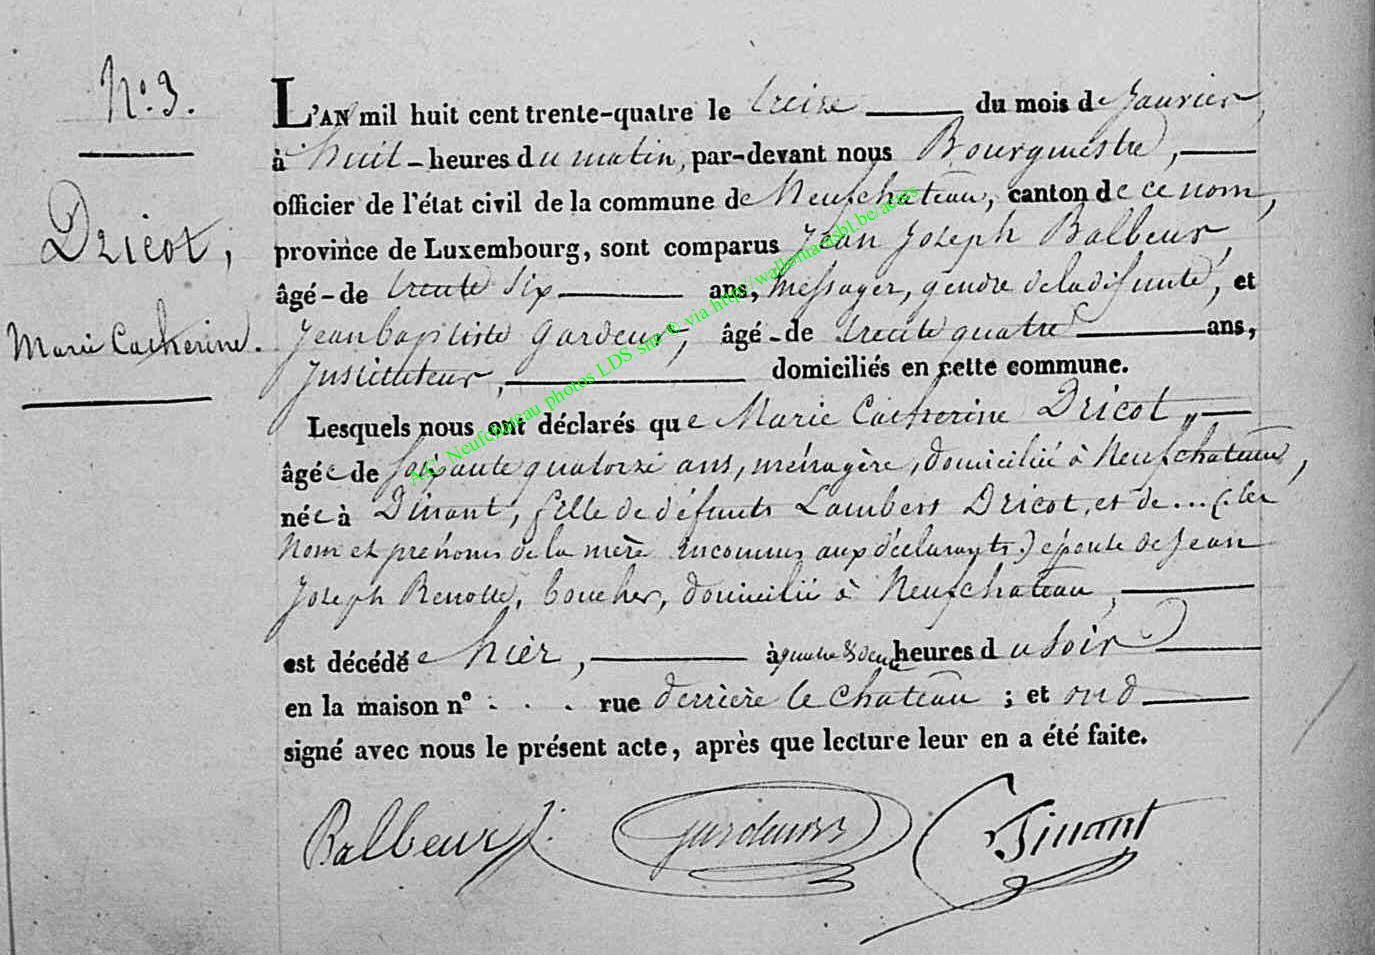 N.º 3.
Dricot,
Marie Catherine.
L'AN mil huit cent trente-quatre le treize du mois de Janvier,
à huit - heures du matin, par-devant nous Bourgmestre,
officier de l'état civil de la commune de Neufchateau, canton de ce nom,
province de Luxembourg, sont comparus Jean Joseph Balbeur,
âgé - de trente six ans, Messager, gendre de la difunte, et
Jean baptiste Gardeur, âgé - de trente quatre ans,
Instituteur, domiciliés en cette commune.
Lesquels nous ont déclarés que Marie Catherine Dricot,
âgée de soixante quatorze ans, ménagère, domicilié à Neufchateau,
née à Dinant, fille de défunts Lambert Dricot, et de ... (les
nom et prénoms de la mère inconnus aux déclarants) épouse de Jean
Joseph Renotte, boucher, domicilié à Neufchateau,
est décédée hier, à heures du soir
en la maison nº . . . rue derrière le chateau ; et ont
signé avec nous le présent acte, après que lecture leur en a été faite.
Balbeur Gardeur Dinant
AC Neufchateau photos LDS site © via http://wallonia-asbl.be/actes